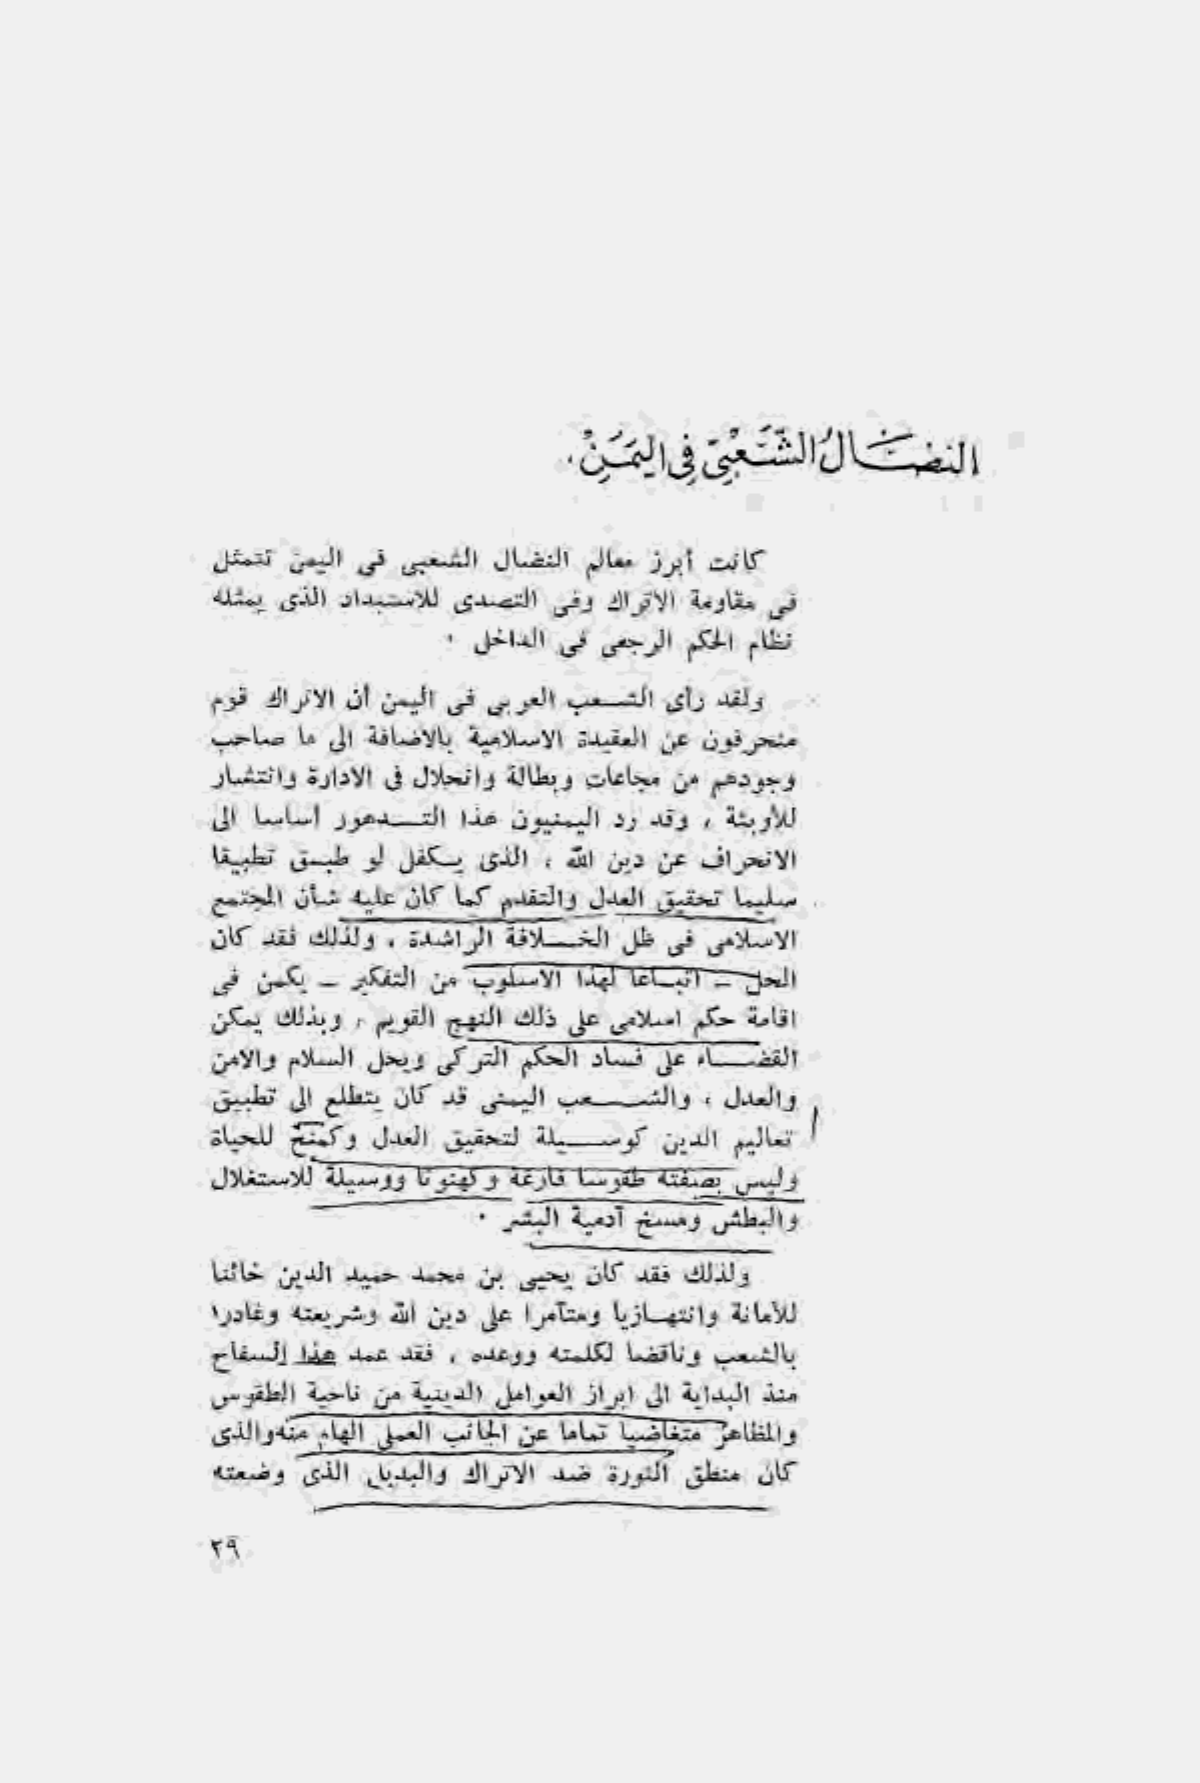 النضال الشعبي في اليمن
كانت أبرز معالم النضال الشعبى فى اليمن تتمثل
فى مقاومة الاتراك وفى التصدى للاستبداد الذى يمثله
نظام الحكم الرجعى فى الداخل ٠
ولقد رأى الشـــعب العربى فى اليمن أن الاتراك قوم
منحرفون عن العقيدة الاسلامية بالاضافة الى ما صاحب
وجودهم من مجاعات وبطالة وانحلال فى الادارة وانتشار
للأوبئة ، وقد رد اليمنيون هذا التـــدهور أساسا الى
الانحراف عن دين الله ، الذى يـكفل لو طبـق تطبيقا
سليما تحقيق العدل والتقدم كما كان عليه شأن المجتمع
الاسلامى فى ظل الخـــلافة الراشدة ، ولذلك فقد كان
الحل ـ اتبـاعا لهذا الاسلوب من التفكير ـ يكمن فى
اقامة حكم اسلامى على ذلك النهج القويم ، وبذلك يمكن
القضـــاء على فساد الحكم التركى ويحل السلام والامن
والعدل ، والشـــعب اليمنى قد كان يتطلع الى تطبيق
تعاليم الدين كوســـيلة لتحقيق العدل وكمنهج للحياة
وليس بصفته طقوسا فارغة وكهنوتا ووسيلة للاستغلال
والبطش ومسخ آدمية البشر ٠
ولذلك فقد كان يحيى بن محمد حميد الدين خائنا
للأمانة وانتهـازيا ومتآمرا على دين الله وشريعته وغادرا
بالشعب وناقضا لكلمته ووعده ، فقد عمد هذا السفاح
منذ البداية الى ابراز العوامل الدينية من ناحية الطقوس
والمظاهر متغاضيا تماما عن الجانب العملى الهام منه والذى
كان منطق الثورة ضد الاتراك والبديل الذى وضعته
٢٩